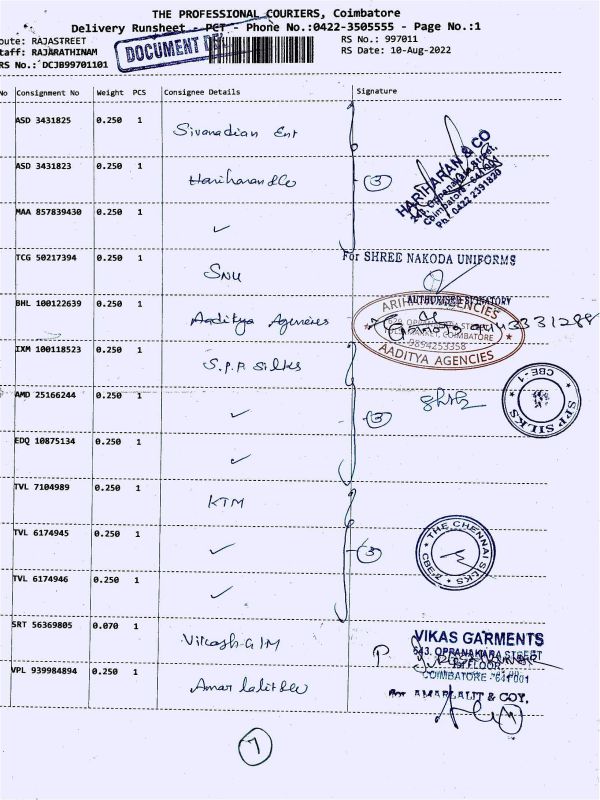 THE PROFESSIONAL COURIERS, Coimbatore
Delivery Runsheet - PCT - Phone No.:0422-3505555 - Page No.:1
oute: RAJASTREET
RS No.: 997011
taff: RAJARATHINAM
RS Date: 10-Aug-2022
RS No.: DCJB99701101
DOCUMENT DE
No Consignment No Weight PCS Consignee Details Signature
ASD 3431825 0.250 1 Sivanadian Ent
ASD 3431823 0.250 1 Hariharan & Co (3)
HARIHARAN & CO
243, Oppanakara Street,
Coimbatore - 641 001
Ph: 0422 2391820
MAA 857839430 0.250 1 ✓
TCG 50217394 0.250 1 SNU
For SHREE NAKODA UNIFORMS
AUTHORISED SIGNATORY
BHL 100122639 0.250 1 Aaditya Agencies
ARIHANT AGENCIES
COIMBATORE
9894253358
AADITYA AGENCIES
IXM 100118523 0.250 1 S.P.P. Silks
AMD 25166244 0.250 1 ✓ (3)
CBE-1
SPP SILKS
EDQ 10875134 0.250 1 ✓
TVL 7104989 0.250 1 KTM
TVL 6174945 0.250 1 ✓ (3)
THE CHENNAI SILKS
CBE-2
TVL 6174946 0.250 1 ✓
SRT 56369805 0.070 1 Vikash GIM
VIKAS GARMENTS
543, OPPANAKARA STREET
1st FLOOR
COIMBATORE - 641 001
VPL 939984894 0.250 1 Amar lalit & Co
For AMARLALIT & COY,
7